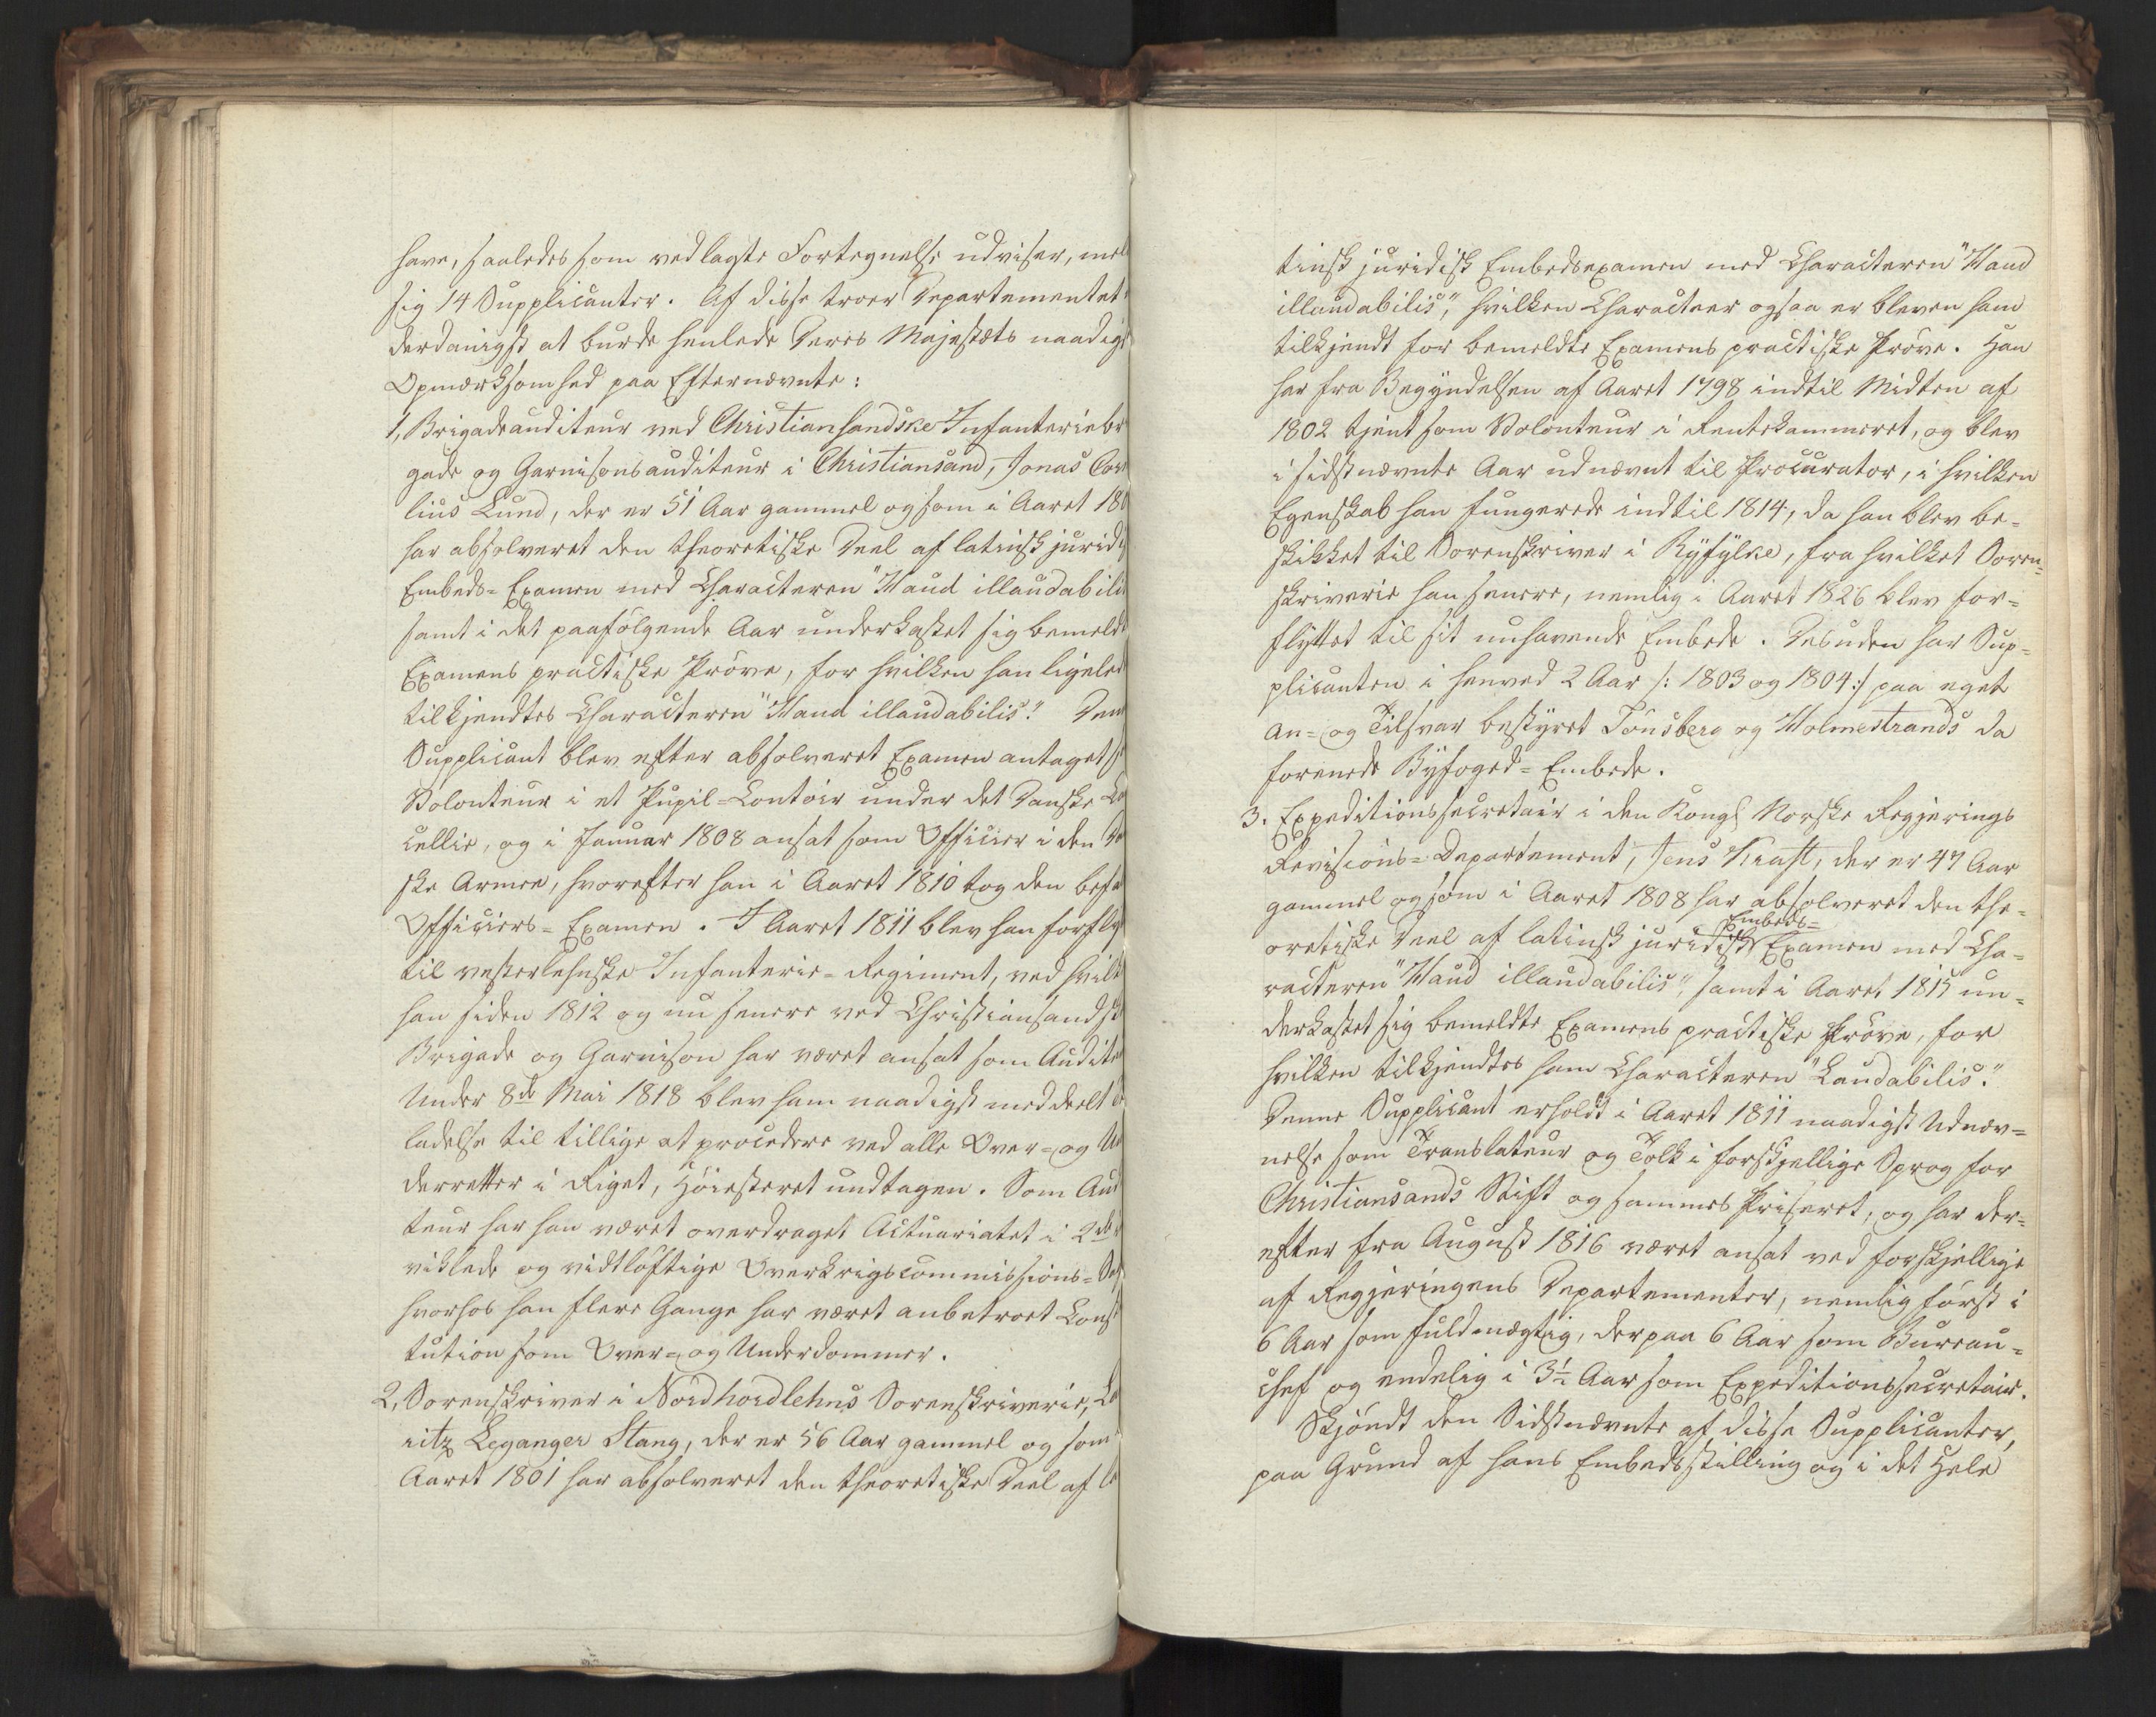 have, saaledes som vedlagte Fortegnelse udviser, mel
sig 14 Supplicanter. Af disse troer Departementet
derdanigst at burde henlede Deres Majestæts naadigs
Opmærksomhed paa Efternævnte:
1, Brigadeauditeur ved Christiansandske Infanteriebr
gade og Garnisonsauditeur i Christiansand, Jonas Cor
lius Lund, der er 51 Aar gammel og som i Aaret 180
har absolveret den theoretiske Deel af latinsk juridi
Embeds-Examen med Characteren "Haud illaudabilis
samt i det paafølgende Aar underkastet sig bemeldt
Examens practiske Prøve, for hvilken han ligeled
tilkjendtes Characteren "Haud illaudabilis". Den
Supplicant blev efter absolveret Examen antaget s
Volonteur i et Pupil-Contoir under det Danske Ca
cellie, og i Januar 1808 ansat som Officier i den No
ske Armee, hvorefter han i Aaret 1810 tog den befa
Officiers-Examen. I Aaret 1811 blev han forfly
til vesterlehnske Infanterie-Regiment, ved hvilk
han siden 1812 og nu senere ved Christiansandsk
Brigade og Garnison har været ansat som Audite
Under 8de Mai 1818 blev ham naadigst meddeelt
ladelse til tillige at procedere ved alle Over- og Un
derretter i Riget, Høiesteret undtagen. Som Audi
teur har han været overdraget Actuariatet i 2de
viklede og vidtløftige Overkrigscommissions-Sag
hvorhos han flere Gange har været anbetroet Const
tution som Over- og Underdommer.
2, Sorenskriver i Nordhordlehns Sorenskriverie, La
ritz Leganger Stang, der er 56 Aar gammel og som
Aaret 1801 har absolveret den theoretiske Deel af la
tinsk juridisk Embedsexamen med Characteren "Haud
illaudabilis", hvilken Characteer ogsaa er bleven ham
tilkjendt for bemeldte Examens practiske Prøve. Han
har fra Begyndelsen af Aaret 1798 indtil Midten af
1802 tjent som Volonteur i Rentekammeret, og blev
i sidstnævnte Aar udnævnt til Procurator, i hvilken
Egenskab han fungerede indtil 1814, da han blev be-
skikket til Sorenskriver i Ryfylke, fra hvilket Soren-
skriverie han senere, nemlig i Aaret 1826 blev for-
flyttet til sit nuhavende Embede. Desuden har Sup-
plicanten i henved 2 Aar /: 1803 og 1804 :/ paa eget
An- og Tilsvar bestyret Tønsberg og Holmestrands da
forenede Byfoged-Embede.
3. Expeditionssecretair i den Kongl Norske Regjerings
Revisions-Departement, Jens Kraft, der er 47 Aar
gammel og som i Aaret 1808 har absolveret den the-
oretiske Deel af latinsk juridisk Embeds- Examen med Cha-
racteren "Haud illaudabilis", samt i Aaret 1815 un-
derkastet sig bemeldte Examens practiske Prøve, for
hvilken tilkjendtes ham Characteren "Laudabilis."
Denne Supplicant erholdt i Aaret 1811 naadigst Udnæv-
nelse som Translateur og Tolk i forskjellige Sprog for
Christiansands Stift og sammes Priseret, og har der-
efter fra August 1816 været ansat ved forskjellige
af Regjeringens Departementer, nemlig først i
6 Aar som Fuldmægtig, derpaa 6 Aar som Bureau-
chef og endelig i 3½ Aar som Expeditionssecretair.
Skjøndt den Sidstnævnte af disse Supplicanter,
paa Grund af hans Embedsstilling og i det Hele